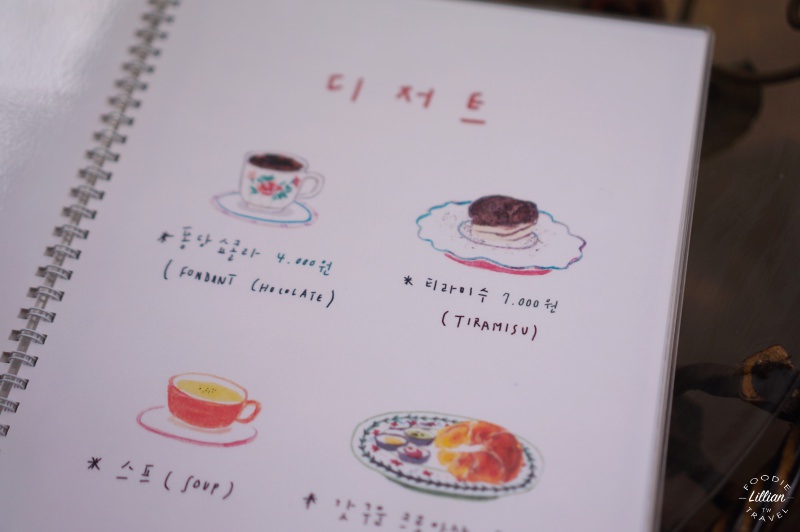 디저트
* 퐁당 쇼콜라 4.000원
(FONDANT CHOCOLATE)
* 티라미수 7.000원
(TIRAMISU)
* 스프 (SOUP)
* 갓 구운 크로아상
FOODIE
Lillian
TW
TRAVEL